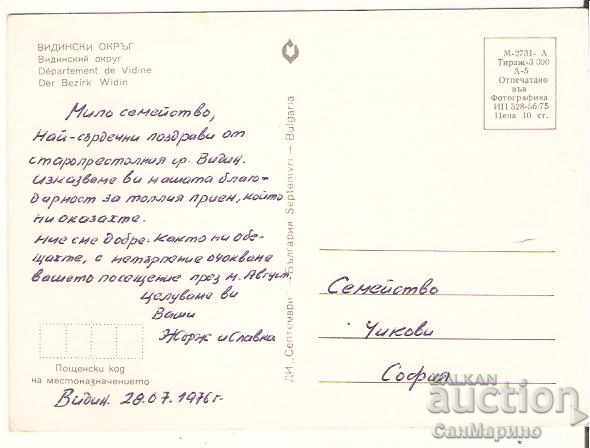 ВИДИНСКИ ОКРЪГ
Видинский округ
Département de Vidine
Der Bezirk Widin
Мило семейство,
Най-сърдечни поздрави от
старопрестолния гр. Видин.
Изказваме ви нашата благо-
дарност за топлия прием, който
ни оказахте.
Ние сме добре. Както ни обе-
щахте, с нетърпение очакваме
вашето посещение през м. Август.
Целуваме ви
Ваши
Жорж и Славка
Пощенски код
на местоназначението
Видин, 28.07.1976г.
ДИ „Септември“ — България Septemvri — Bulgaria
М-2731-А
Тираж-3 300
Д-5
Отпечатано
във
Фотографика
ИП 328-56/75
Цена 10 ст.
Семейство
Чикови
София
BALKAN
auction
СанМарино